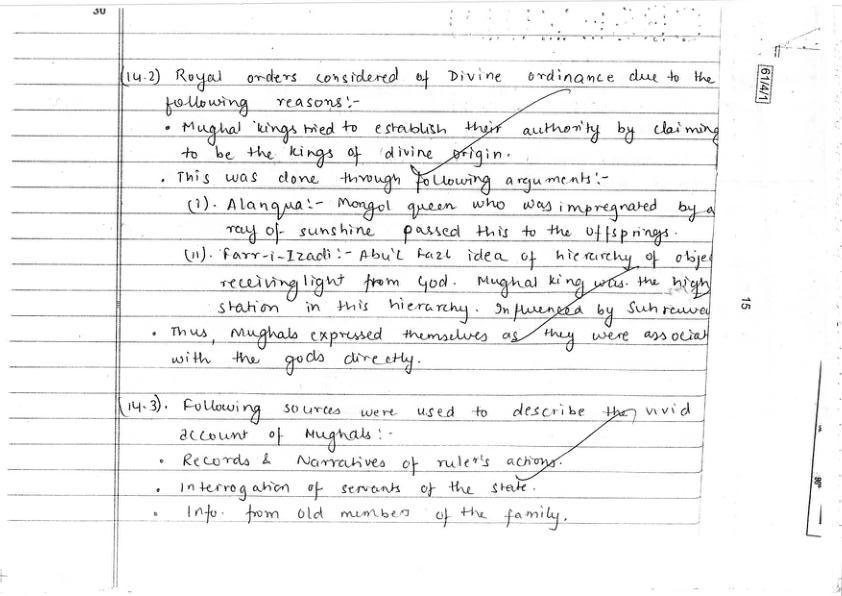 30
61/4/1
(14.2) Royal orders considered of Divine ordinance due to the
following reasons:-
• Mughal kings tried to establish their authority by claiming
to be the kings of divine origin.
• This was done through following arguments:-
(i). Alanqua:- Mongol queen who was impregnated by a
ray of sunshine passed this to the offsprings.
(ii). Farr-i-Izadi:- Abu'l Fazl idea of hierarchy of objec
receiving light from God. Mughal king was the high
station in this hierarchy. Influenced by Suhrawa
• Thus, Mughals expressed themselves as they were associat
with the gods directly.
15
(14.3). Following sources were used to describe the vivid
account of Mughals:-
• Records & Narratives of ruler's actions.
• Interrogation of servants of the state.
• Info. from old members of the family.